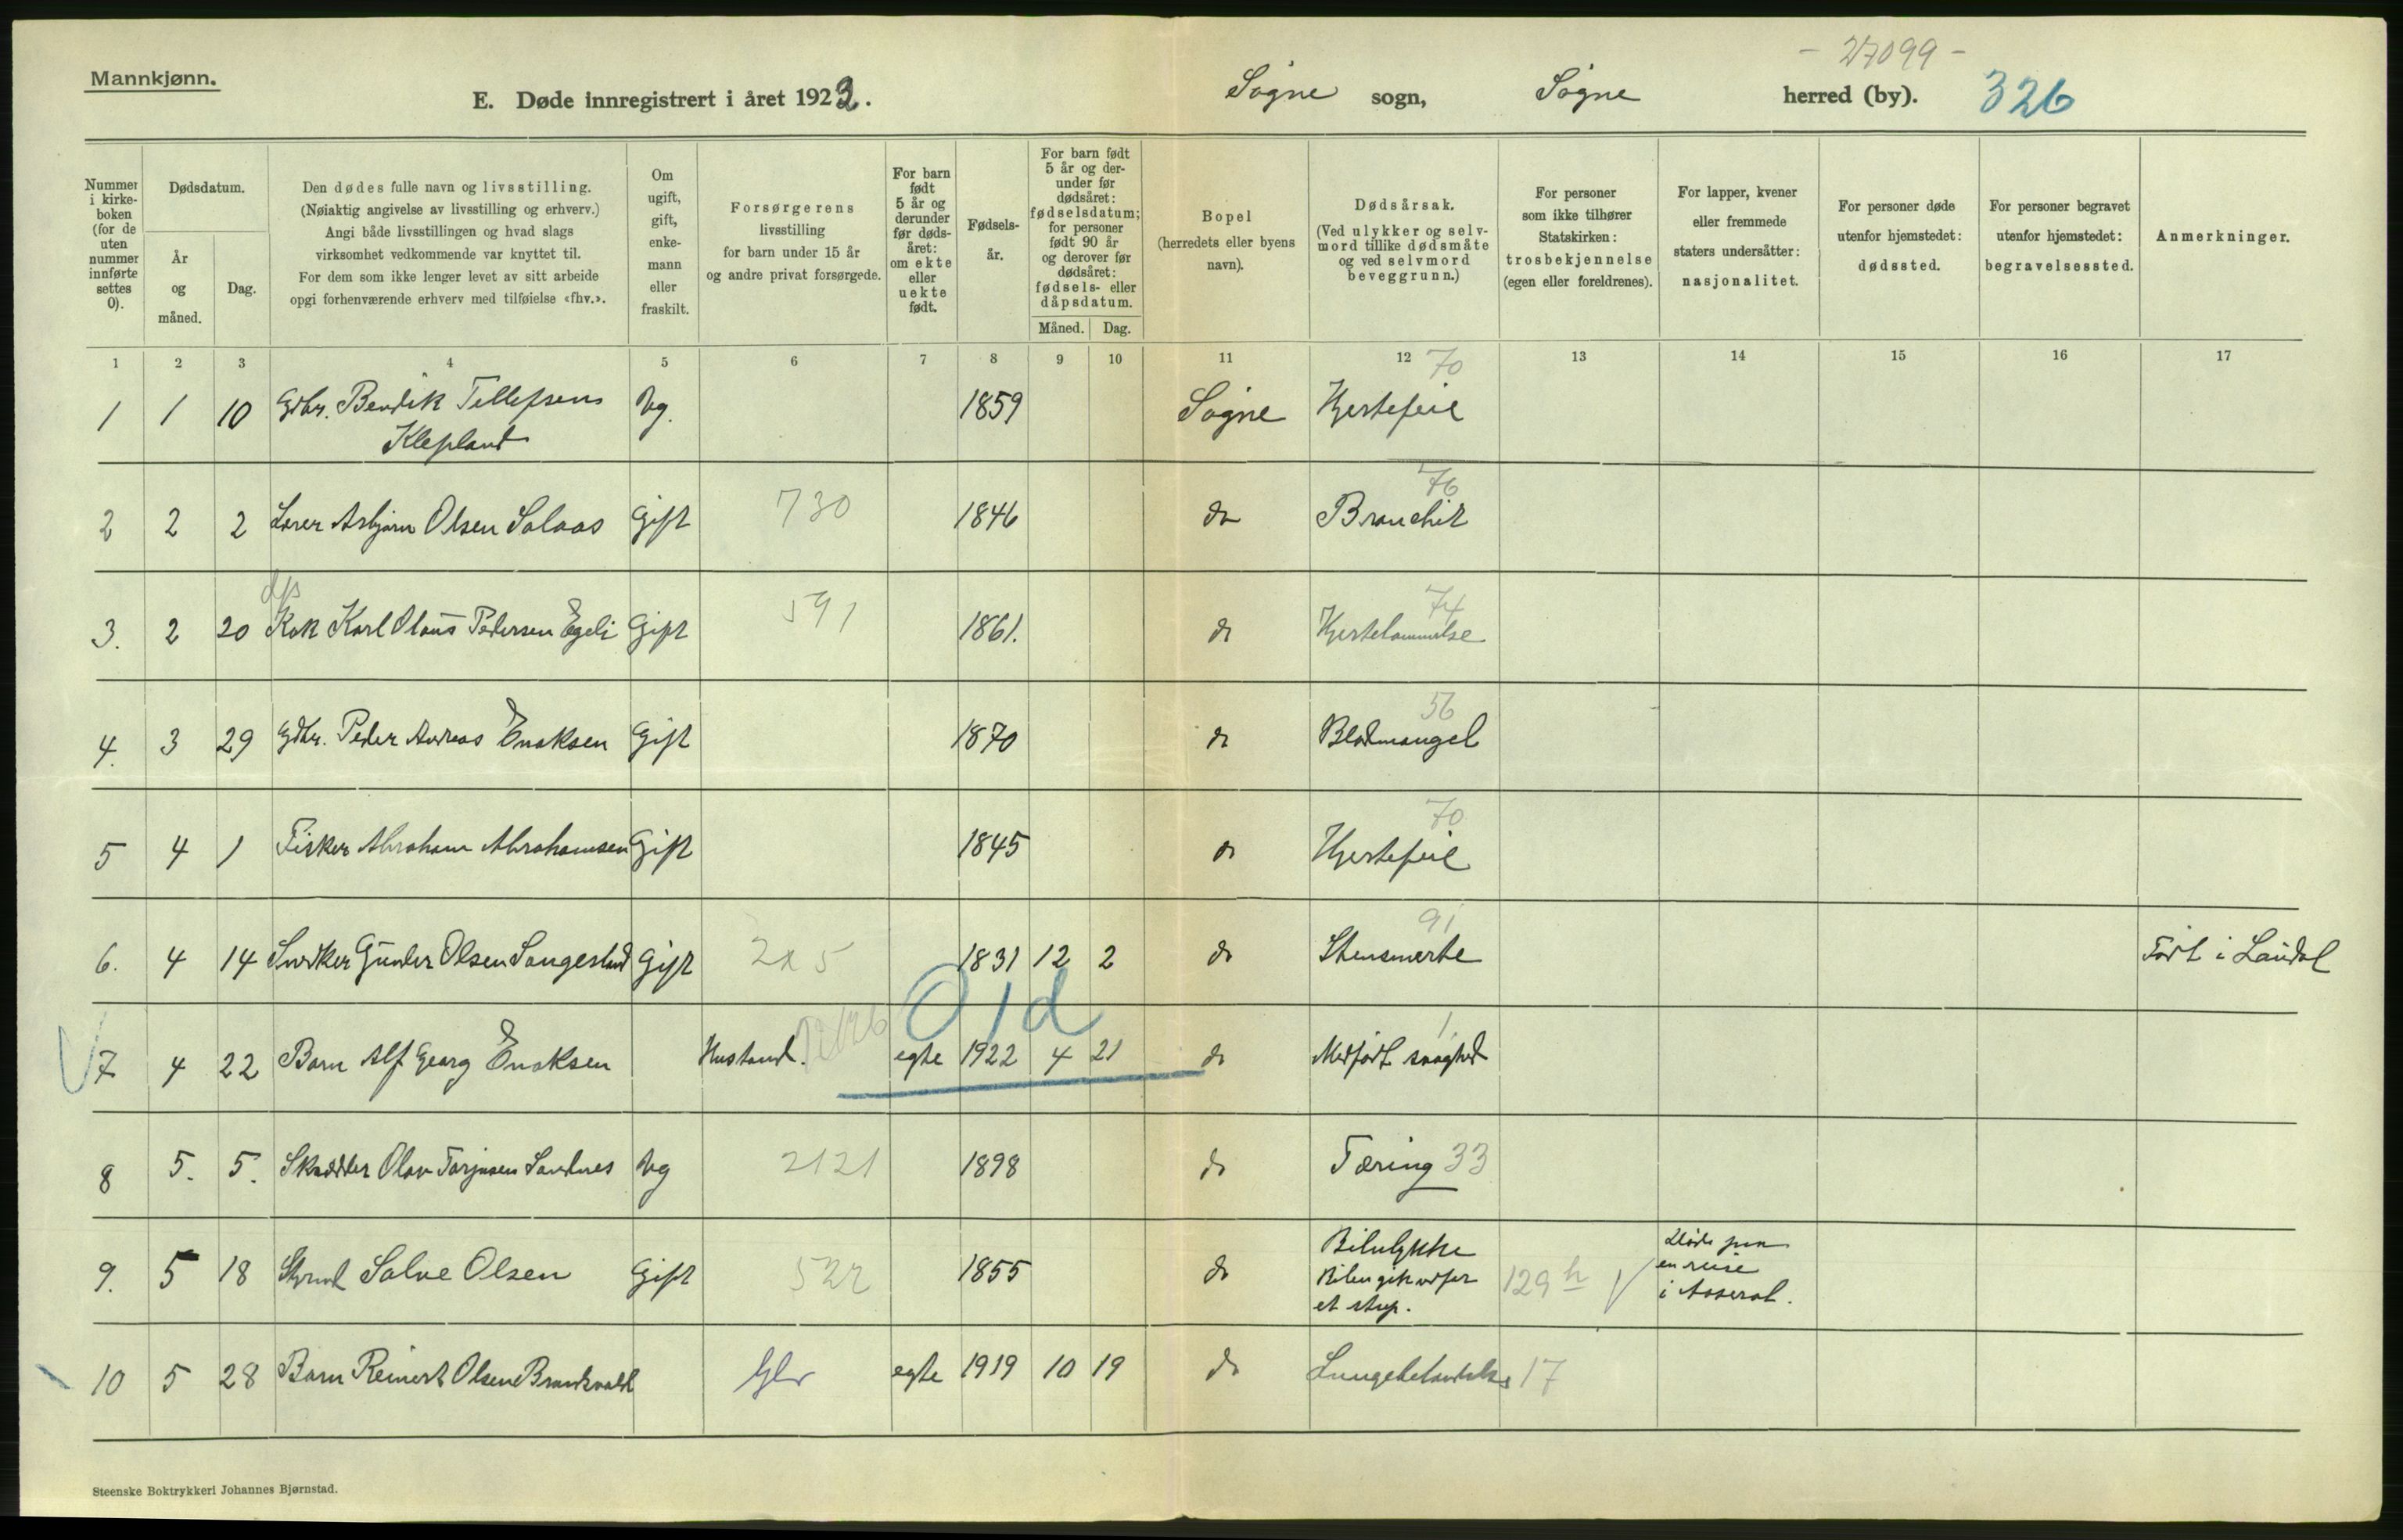 - 27099 -
Mannkjønn.
E. Døde innregistrert i året 1922. Søgne sogn, Søgne herred (by). 326
Nummer i kirkeboken (for de uten nummer innførte settes 0).
Dødsdatum.
År og måned.
Dag.
Den dødes fulle navn og livsstilling.
(Nøiaktig angivelse av livsstilling og erhverv.)
Angi både livsstillingen og hvad slags
virksomhet vedkommende var knyttet til.
For dem som ikke lenger levet av sitt arbeide
opgi forhenværende erhverv med tilføielse «fhv.».
Om ugift, gift, enkemann eller fraskilt.
Forsørgerens
livsstilling
for barn under 15 år
og andre privat forsørgede.
For barn født 5 år og derunder før dødsåret: om ekte eller uekte født.
Fødselsår.
For barn født 5 år og derunder før dødsåret: fødselsdatum; for personer født 90 år og derover før dødsåret: fødsels- eller dåpsdatum.
Måned. Dag.
Bopel
(herredets eller byens navn).
Dødsårsak.
(Ved ulykker og selvmord tillike dødsmåte og ved selvmord beveggrunn.)
For personer som ikke tilhører Statskirken: trosbekjennelse (egen eller foreldrenes).
For lapper, kvener eller fremmede staters undersåtter: nasjonalitet.
For personer døde utenfor hjemstedet: dødssted.
For personer begravet utenfor hjemstedet: begravelsessted.
Anmerkninger.
1 2 3 4 5 6 7 8 9 10 11 12 13 14 15 16 17
70
1 1 10 Gdbr. Bendik Tellefsen Ug. 1859 Søgne Hjertefeil
Klepland
76
2 2 2 Lærer Asbjørn Olsen Salaas Gift 730 1846 do Bronchit
74
3. 2 20 Kok Karl Olaus Pedersen Egeli Gift 591 1861. do Hjertelammelse
56
4. 3 29 Gdbr. Peder Andreas Enoksen Gift 1870 do Blodmangel
70
5 4 1 Fisker Abraham Abrahamsen Gift 1845 do Hjertefeil
91
6. 4 14 Snedker Gunder Olsen Gift 2x5 1831 12 2 do Stensmerte Født i Laudal
0 1 d
1
7 4 22 Barn Alf Georg Enoksen egte 1922 4 21 do Medfødt svaghed
8 5. 5. Skrædder Olav Torjusen Sandnes Ug 2121 1898 do Tæring 33
9. 5 18 Styrmd Salve Olsen Gift 522 1855 do Bilulykke
Bilen gik udfor 129 h
et stup.
Døde paa
en reise
i Aaseral.
10 5 28 Barn Reinert Olsen Gbr egte 1919 10 19 do 17
Steenske Boktrykkeri Johannes Bjørnstad.